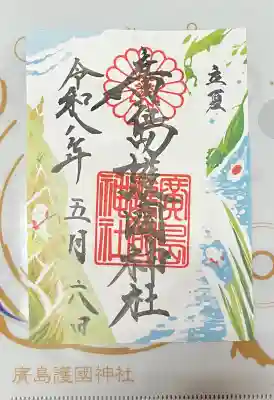 立夏
廣島護國神社
令和八年 五月六日
廣島護國神社
廣島護國神社